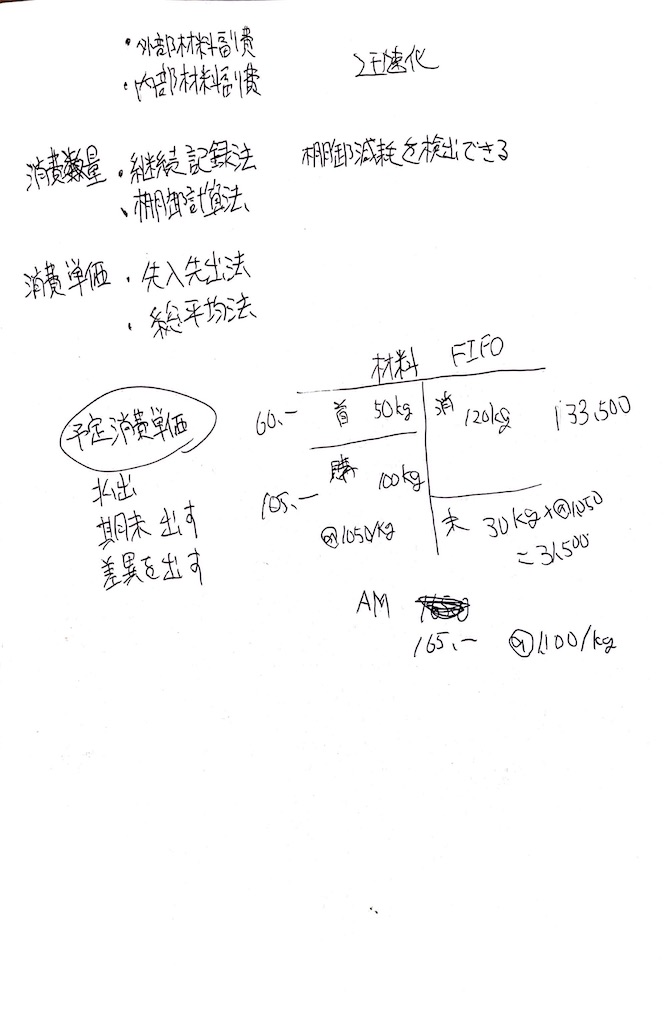 ・外部材料副費
・内部材料副費
迅速化
消費数量 ・継続記録法 棚卸減耗を検出できる
・棚卸計算法
消費単価 ・先入先出法
・総平均法
材料 FIFO
60.- 首 50kg 消 120kg 133.500
105.- 購 100kg
@1050/kg
末 30kg×@1050
=31.500
予定消費単価
払出
期末出す
差異を出す
AM
165.- @1.100/kg